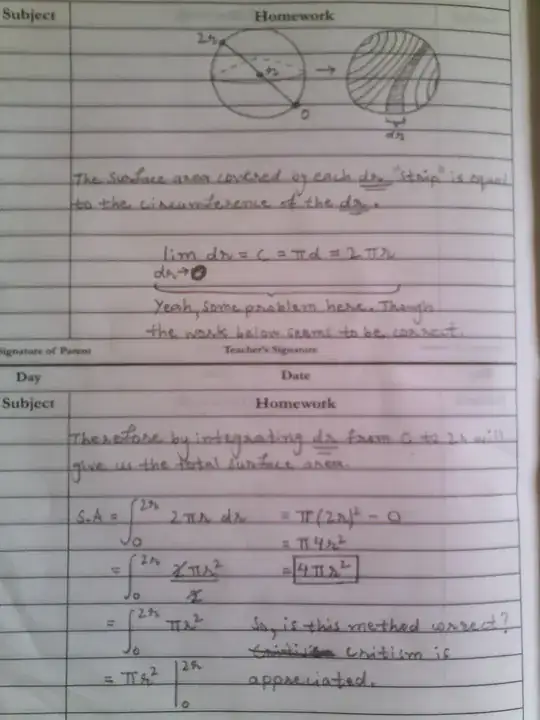 Subject
Homework
2r
r
0
dr
The surface area covered by each dr "strip" is equal
to the circumference of the dr.
lim dr = C = πd = 2πr
dr→0
Yeah, some problem here. Though
the work below seems to be correct.
Signature of Parent
Teacher's Signature
Day
Date
Subject
Homework
Therefore by integrating dr from 0 to 2r will
give us the total surface area.
S.A = ∫₀²ʳ 2πr dr
= ∫₀²ʳ 2πr²/2
= ∫₀²ʳ πr²
= πr² |₀²ʳ
= π(2r)² - 0
= π4r²
= 4πr²
So, is this method correct?
Critism is
appreciated.